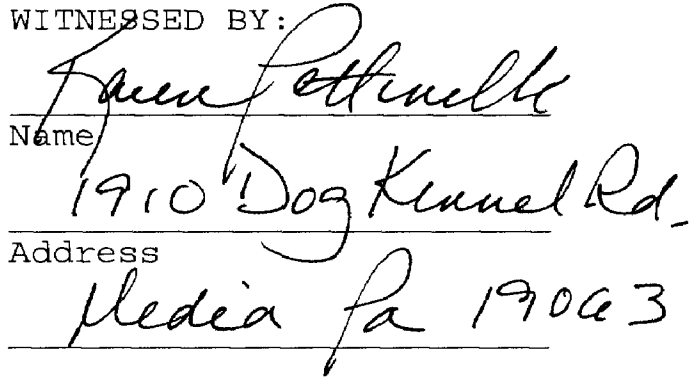 WITNESSED BY:
Karen
Name
1910 Dog Kennel Rd.
Address
Media Pa 19063